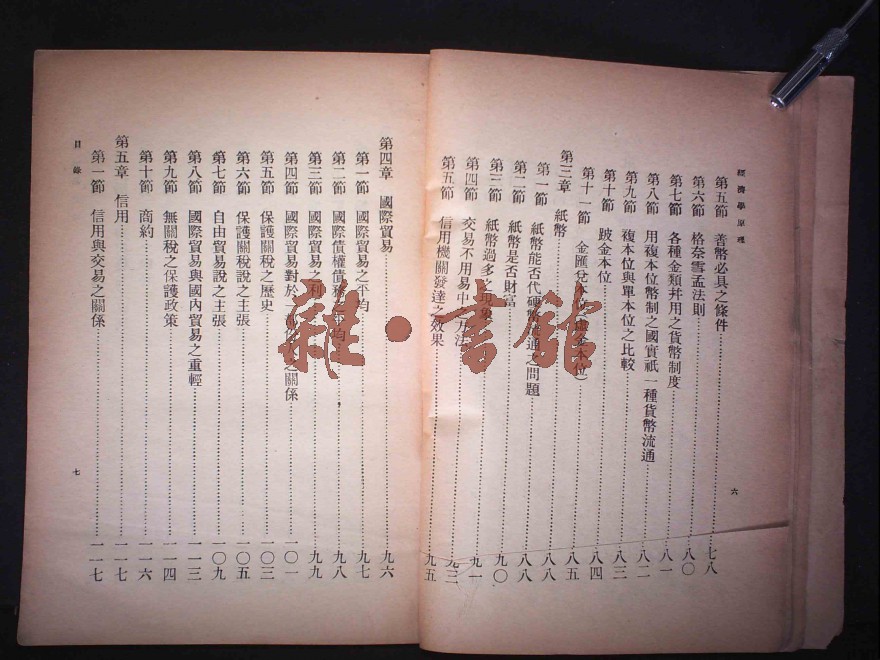 經濟學原理
第五節 善幣必具之條件 七八
第六節 格奈雪孟法則 八〇
第七節 各種金類幷用之貨幣制度 八一
第八節 用複本位幣制之國實祇一種貨幣流通 八二
第九節 複本位與單本位之比較 八三
第十節 跛金本位 八四
第十一節 金匯兌本位(虛金本位) 八五
第三章 紙幣 八八
第一節 紙幣能否代硬幣流通之問題 八八
第二節 紙幣是否財富 九〇
第三節 紙幣過多之現象 九一
第四節 交易不用易中之方法 九二
第五節 信用機關發達之效果 九五
六
第四章 國際貿易 九六
第一節 國際貿易之平均 九七
第二節 國際債權債務之平均 九八
第三節 國際貿易之利 九九
第四節 國際貿易對於 之關係 一〇一
第五節 保護關稅之歷史 一〇三
第六節 保護關稅說之主張 一〇五
第七節 自由貿易說之主張 一〇九
第八節 國際貿易與國內貿易之重輕 一一三
第九節 無關稅之保護政策 一一四
第十節 商約 一一六
第五章 信用 一一七
第一節 信用與交易之關係 一一七
目錄
七
雜·書館